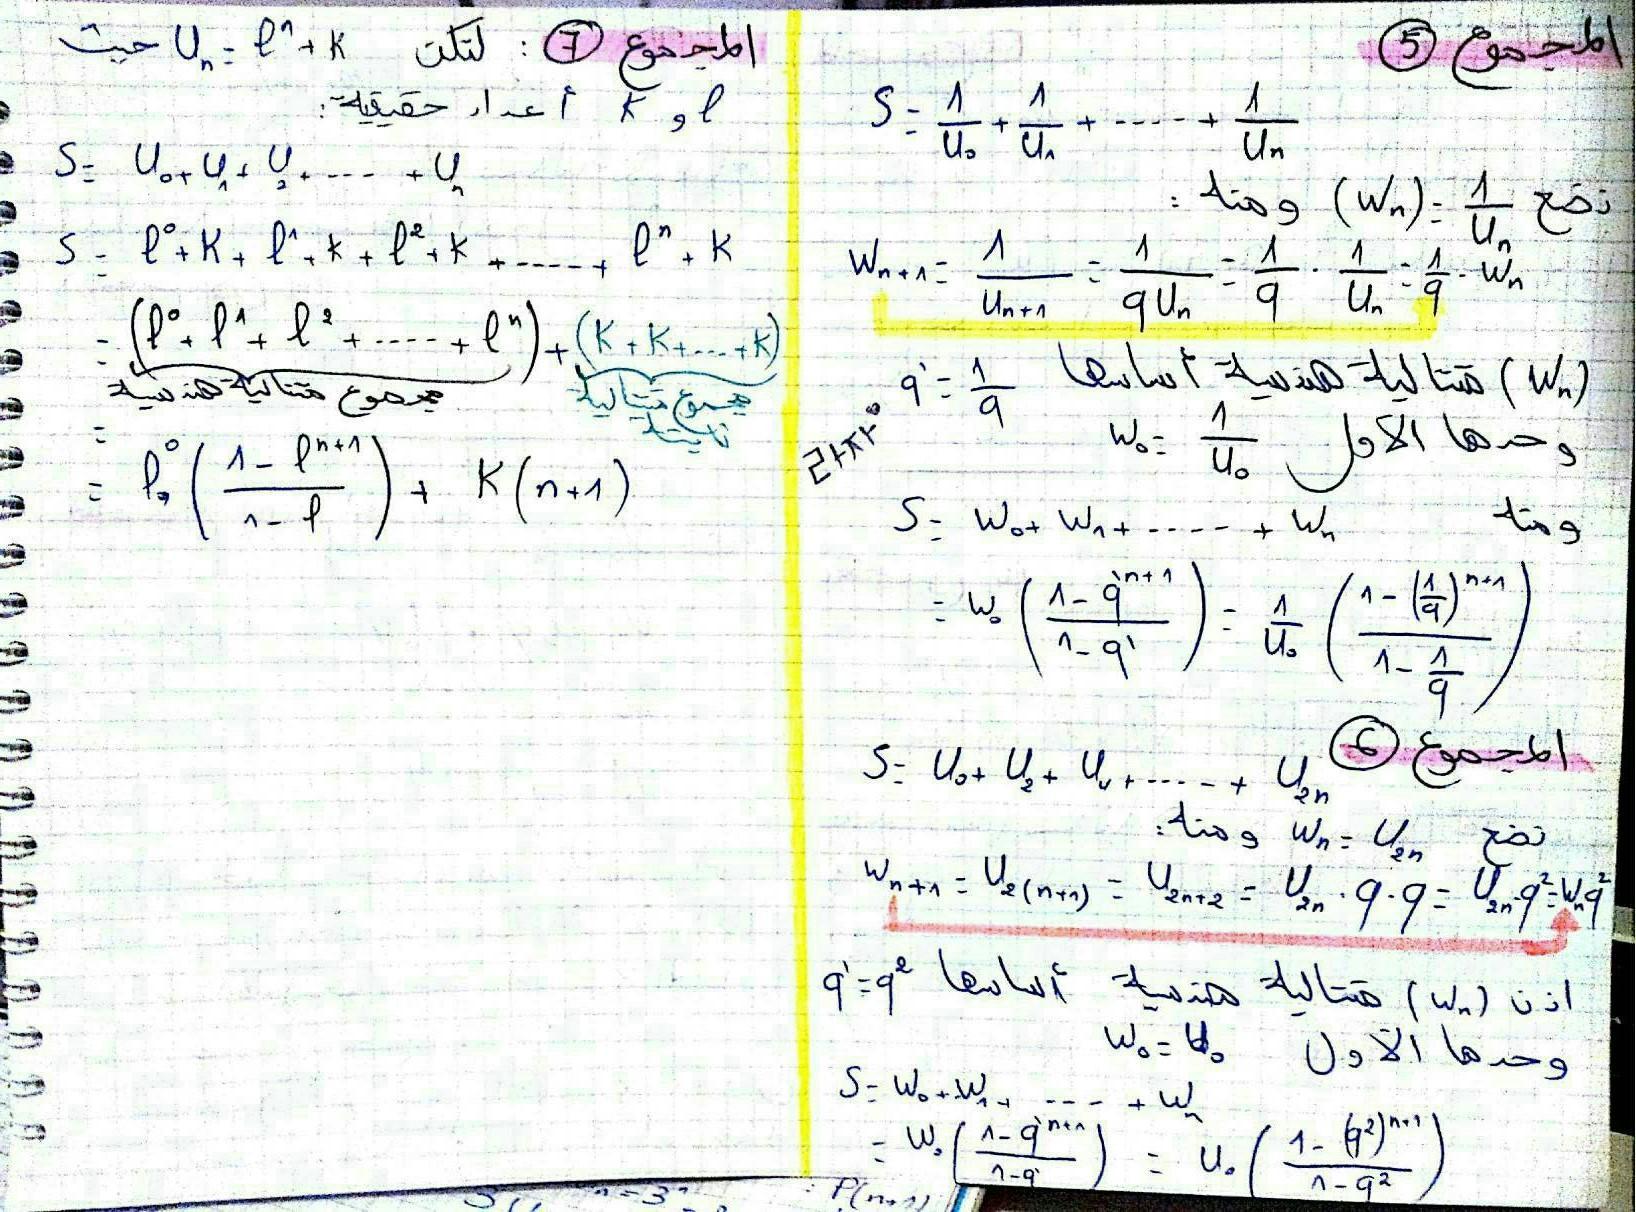 المجموع ⑤
S = 1/U₀ + 1/U₁ + ..... + 1/Uₙ
نضع (Wₙ) = 1/Uₙ ومنه :
Wₙ₊₁ = 1/Uₙ₊₁ = 1/(qUₙ) = 1/q · 1/Uₙ = 1/q · Wₙ
(Wₙ) متتالية هندسية أساسها q' = 1/q
وحدها الأول W₀ = 1/U₀
ومنه S = W₀ + W₁ + ..... + Wₙ
= W₀ ( (1 - q'ⁿ⁺¹) / (1 - q') ) = 1/U₀ ( (1 - (1/q)ⁿ⁺¹) / (1 - 1/q) )
المجموع ⑥
S = U₀ + U₂ + U₄ + ..... + U₂ₙ
نضع Wₙ = U₂ₙ ومنه:
Wₙ₊₁ = U₂₍ₙ₊₁₎ = U₂ₙ₊₂ = U₂ₙ · q · q = U₂ₙ · q² = Wₙ q²
اذن (Wₙ) متتالية هندسية أساسها q' = q²
وحدها الأول W₀ = U₀
S = W₀ + W₁ + .... + Wₙ
= W₀ ( (1 - q'ⁿ⁺¹) / (1 - q') ) = U₀ ( (1 - (q²)ⁿ⁺¹) / (1 - q²) )
المجموع ⑦ : لتكن Uₙ = lⁿ + K حيث
l و K أعداد حقيقية:
S = U₀ + U₁ + U₂ + .... + Uₙ
S = l⁰ + K + l¹ + K + l² + K + ..... + lⁿ + K
= (l⁰ + l¹ + l² + ..... + lⁿ) + (K + K + ... + K)
مجموع متتالية هندسية
مجموع متتالية
ثابتة
=
= l⁰ ( (1 - lⁿ⁺¹) / (1 - l) ) + K(n+1)